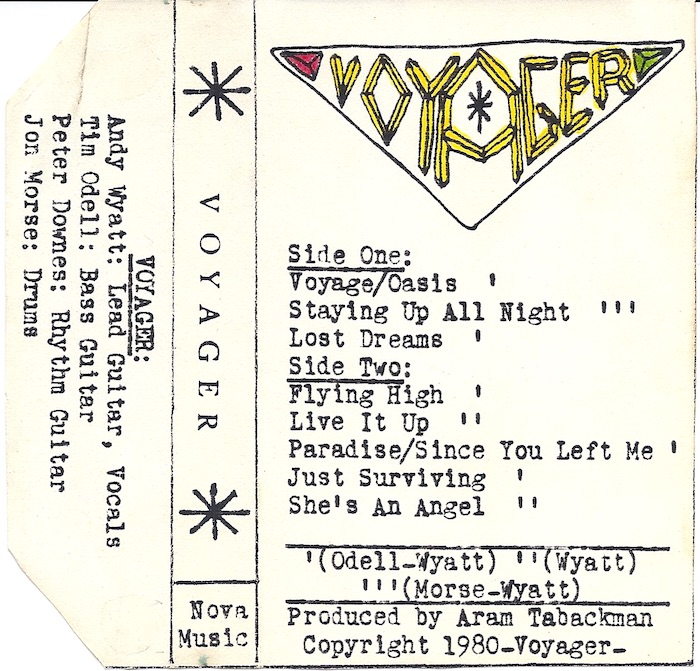 VOYAGER:
Andy Wyatt: Lead Guitar, Vocals
Tim Odell: Bass Guitar
Peter Downes: Rhythm Guitar
Jon Morse: Drums
VOYAGER
Nova
Music
VOYAGER
Side One:
Voyage/Oasis '
Staying Up All Night '''
Lost Dreams '
Side Two:
Flying High '
Live It Up ''
Paradise/Since You Left Me '
Just Surviving '
She's An Angel ''
'(Odell-Wyatt) ''(Wyatt)
'''(Morse-Wyatt)
Produced by Aram Tabackman
Copyright 1980-Voyager-